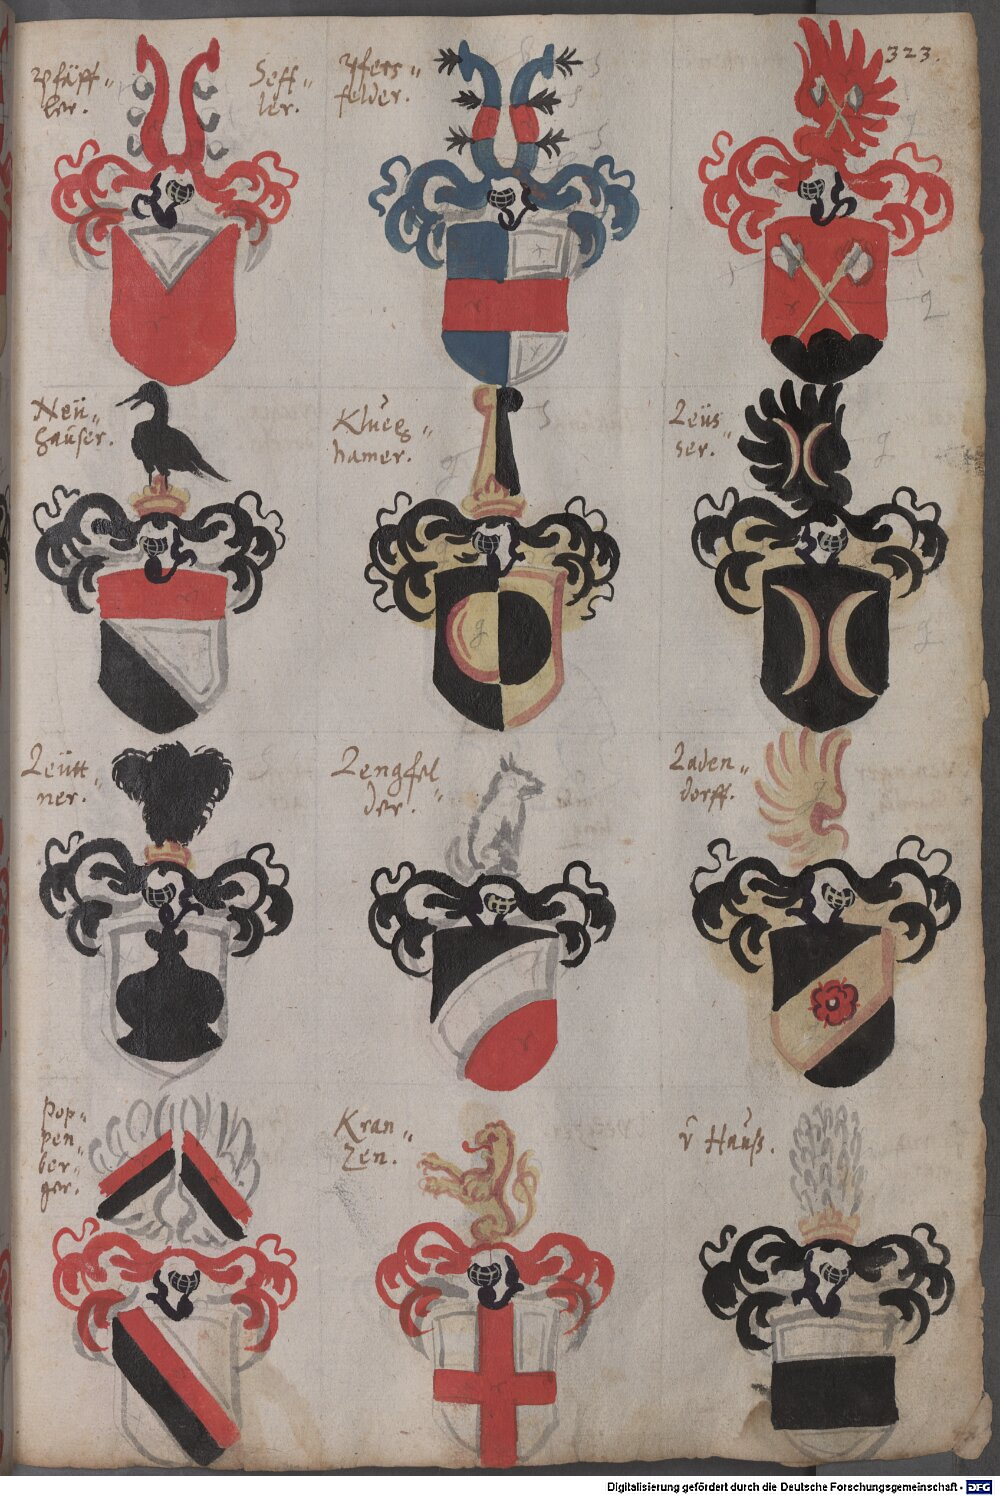 323.
Pfäff-
ler.
Seff-
ler.
Pfers-
felder.
Neü-
hauser.
Klueg-
hamer.
Leüs-
ser.
Leütt-
ner.
Lengfel
der.
Laden-
dorff.
Pop-
pen-
ber-
ger.
Kran-
zen.
v̂ Hauß.
Digitalisierung gefördert durch die Deutsche Forschungsgemeinschaft - DFG